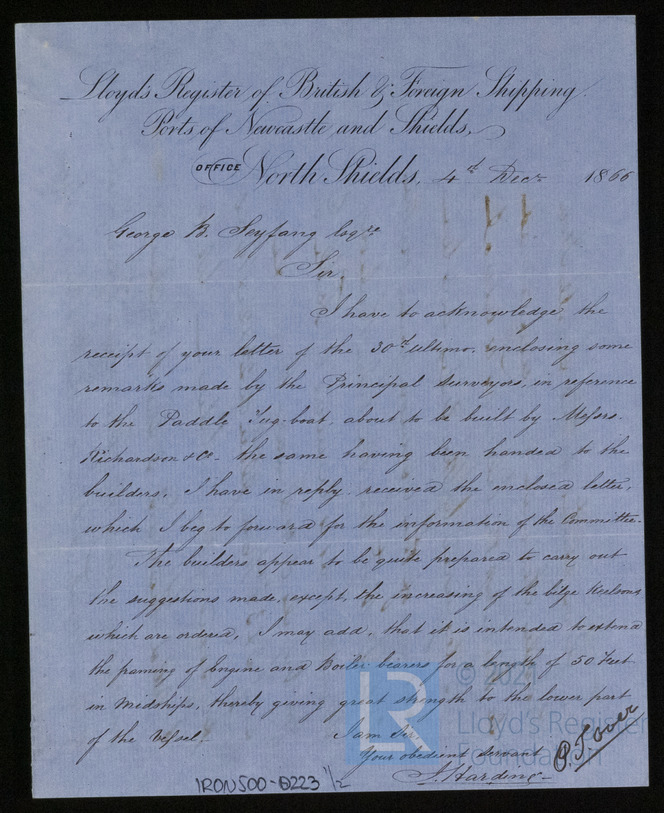 Lloyd's Register of British & Foreign Shipping.
Ports of Newcastle and Shields,
OFFICE North Shields, 4th Decr 1866
George B. Seyfang Esqre
Sir,
I have to acknowledge the
receipt of your letter of the 30th ultimo, enclosing some
remarks made by the Principal Surveyors, in reference
to the Paddle Tug-boat, about to be built by Messrs.
Richardson & Co. the same having been handed to the
builders, I have in reply received the enclosed letter,
which I beg to forward for the information of the Committee.
The builders appear to be quite prepared to carry out
the suggestions made, except, the increasing of the bilge Keelsons
which are ordered, I may add, that it is intended to extend
the framing of Engine and Boiler bearers for a length of 50 feet
in Midships, thereby giving great strength to the lower part
of the Vessel.
I am Sir,
Your obedient Servant
J. Harding
P.T. over
IRON500-0223 1/2
LR
Lloyd's Register
Foundation